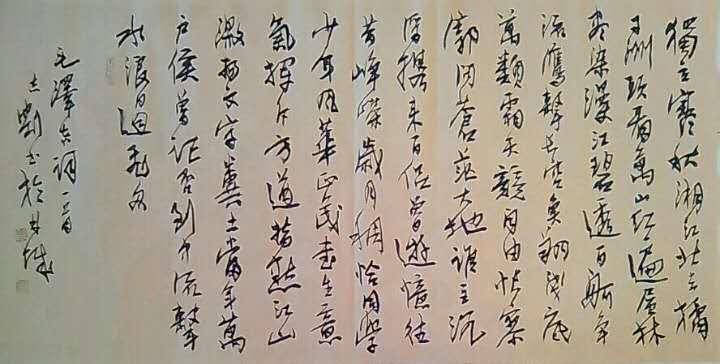 獨立寒秋湘江北去橘
子洲頭看萬山红遍層林
盡染漫江碧透百舸争
流鷹擊長空魚翔淺底
萬類霜天競自由悵寥
廓問蒼茫大地誰主沉
浮攜來百侣曾遊憶往
昔峥嵘歲月稠恰同學
少年風華正茂書生意
氣揮斥方遒指點江山
激揚文字糞土當年萬
户侯曾记否到中流擊
水浪遏飛舟
毛澤东词一首
劉书於城